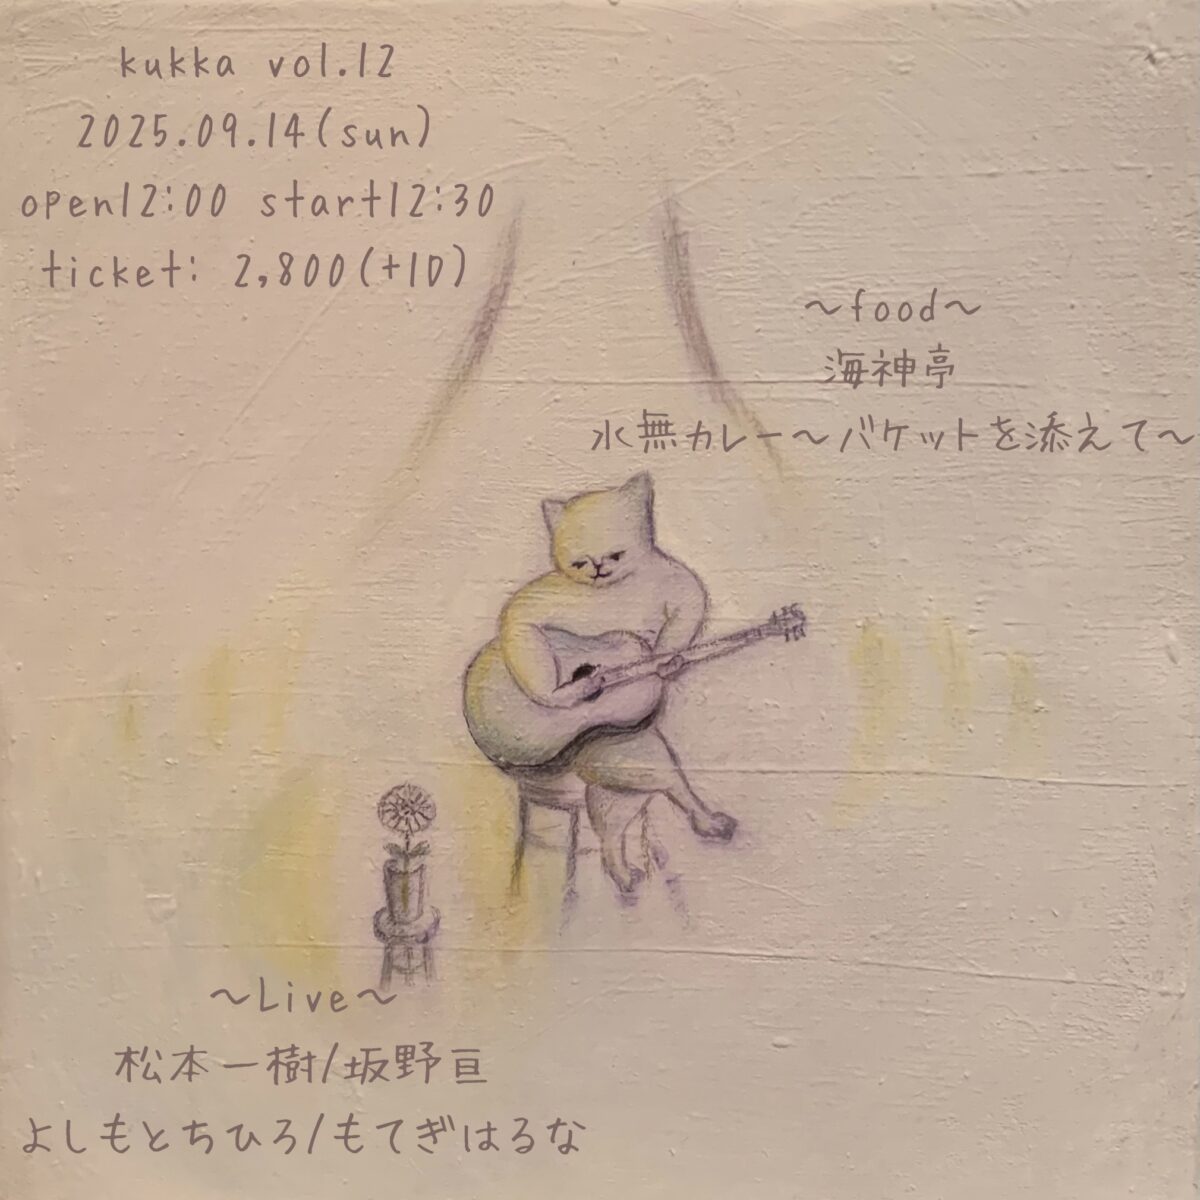 kukka vol.12
2025.09.14(sun)
open12:00 start12:30
ticket: 2,800(+1D)
～food～
海神亭
水無カレー～バケットを添えて～
～Live～
松本一樹/坂野亘
よしもとちひろ/もてぎはるな